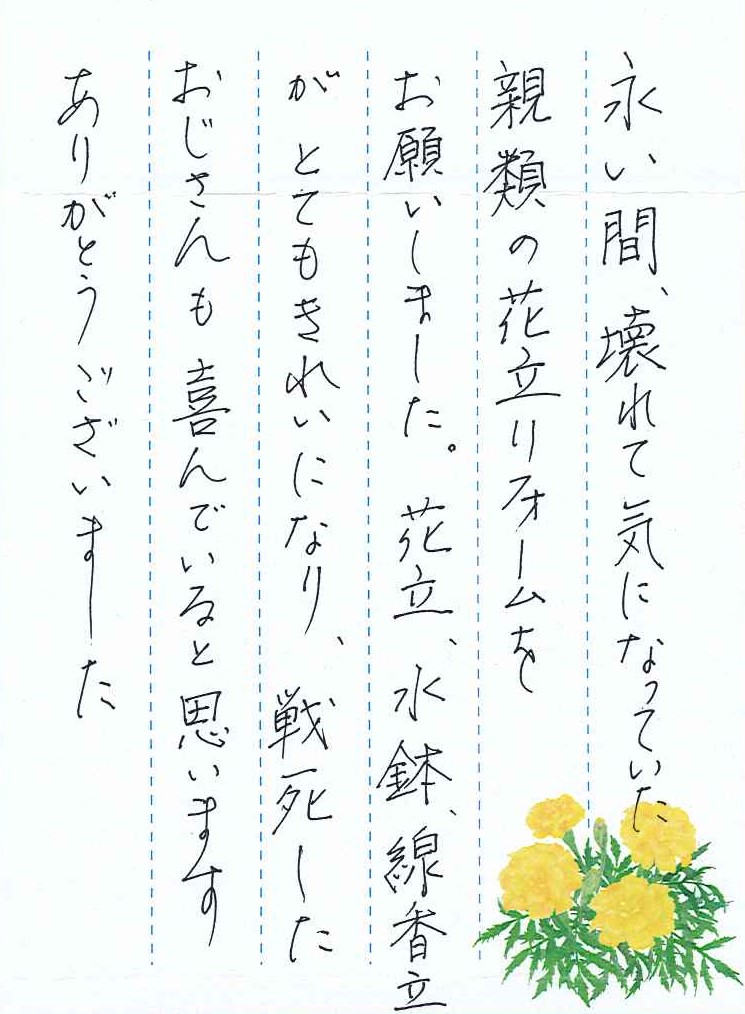 永い間、壊れて気になっていた
親類の花立リフォームを
お願いしました。花立、水鉢、線香立
がとてもきれいになり、戦死した
おじさんも喜んでいると思います
ありがとうございました